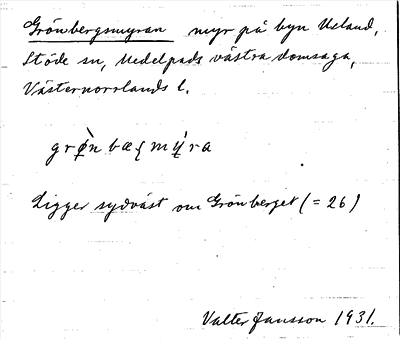 Grönbergsmyran myr på byn Usland,
Stöde sn, Medelpads västra domsaga,
Västernorrlands l.
Ligger sydväst om Grönberget (= 26)
Valter Jansson 1931.